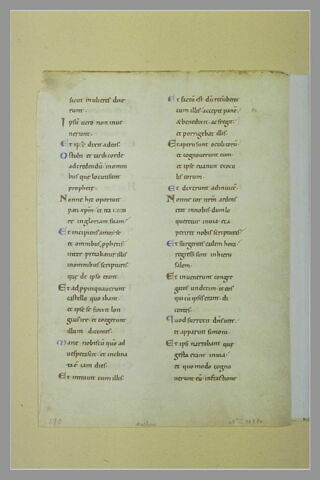 sicut mulieres dixe
runt.
Ipsū uero non inue
nerunt.
Et ipse dixit ad eos.
O stulti et tardi corde
ad credendū in omni
bus que locuti sunt
prophete.
Nonne hec oportuit
pati xpm et ita intra
re in gloriam suam.
Et incipiens a moyse
et omnibus pphetis
inter pretabatur illis
in omnibus scripturis
que de ipso erant.
Et adppinquauerunt
castello quo ibant.
et ipse se finxit lon
gius ire. et coegerunt
illum dicentes.
Mane nobiscū qm ad
uesperascit. et inclina
ta ē iam dies.
Et intrauit cum illis.
Et factū est dū recūberet
cum illis. accepit panē.
& benedixit. ac fregit.
et porrigebat illis.
Et aperti sunt oculi eorū
et cognouerunt eum.
et ipse euanuit ex ocu
lis eorum.
Et dixerunt adinuicē.
Nonne cor nrm ardens
erat in nobis dum lo
queretur in uia. et a
periret nobis scripturas.
Et surgentes eadem hora
regressi sunt in hieru
salem.
Et inuenerunt congre
gatos undecim. et eos
qui cū ipsis erant. di
centes.
Quod surrexit dns uere.
et apparuit simoni.
Et ipsi narrabant que
gesta erant in uia.
et quo modo cogno
uerunt eū in fractione